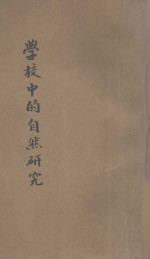 學校中的自然研究